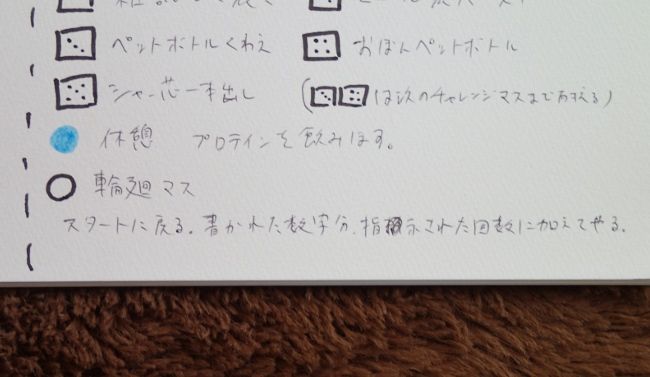 ペットボトルくわえ おぼんペットボトル
シャー芯一本出し (は次のチャレンジマスまで加える)
休憩 プロテインを飲みほす。
輪廻マス
スタートに戻る。書かれた数字分、指示された回数に加えてやる。